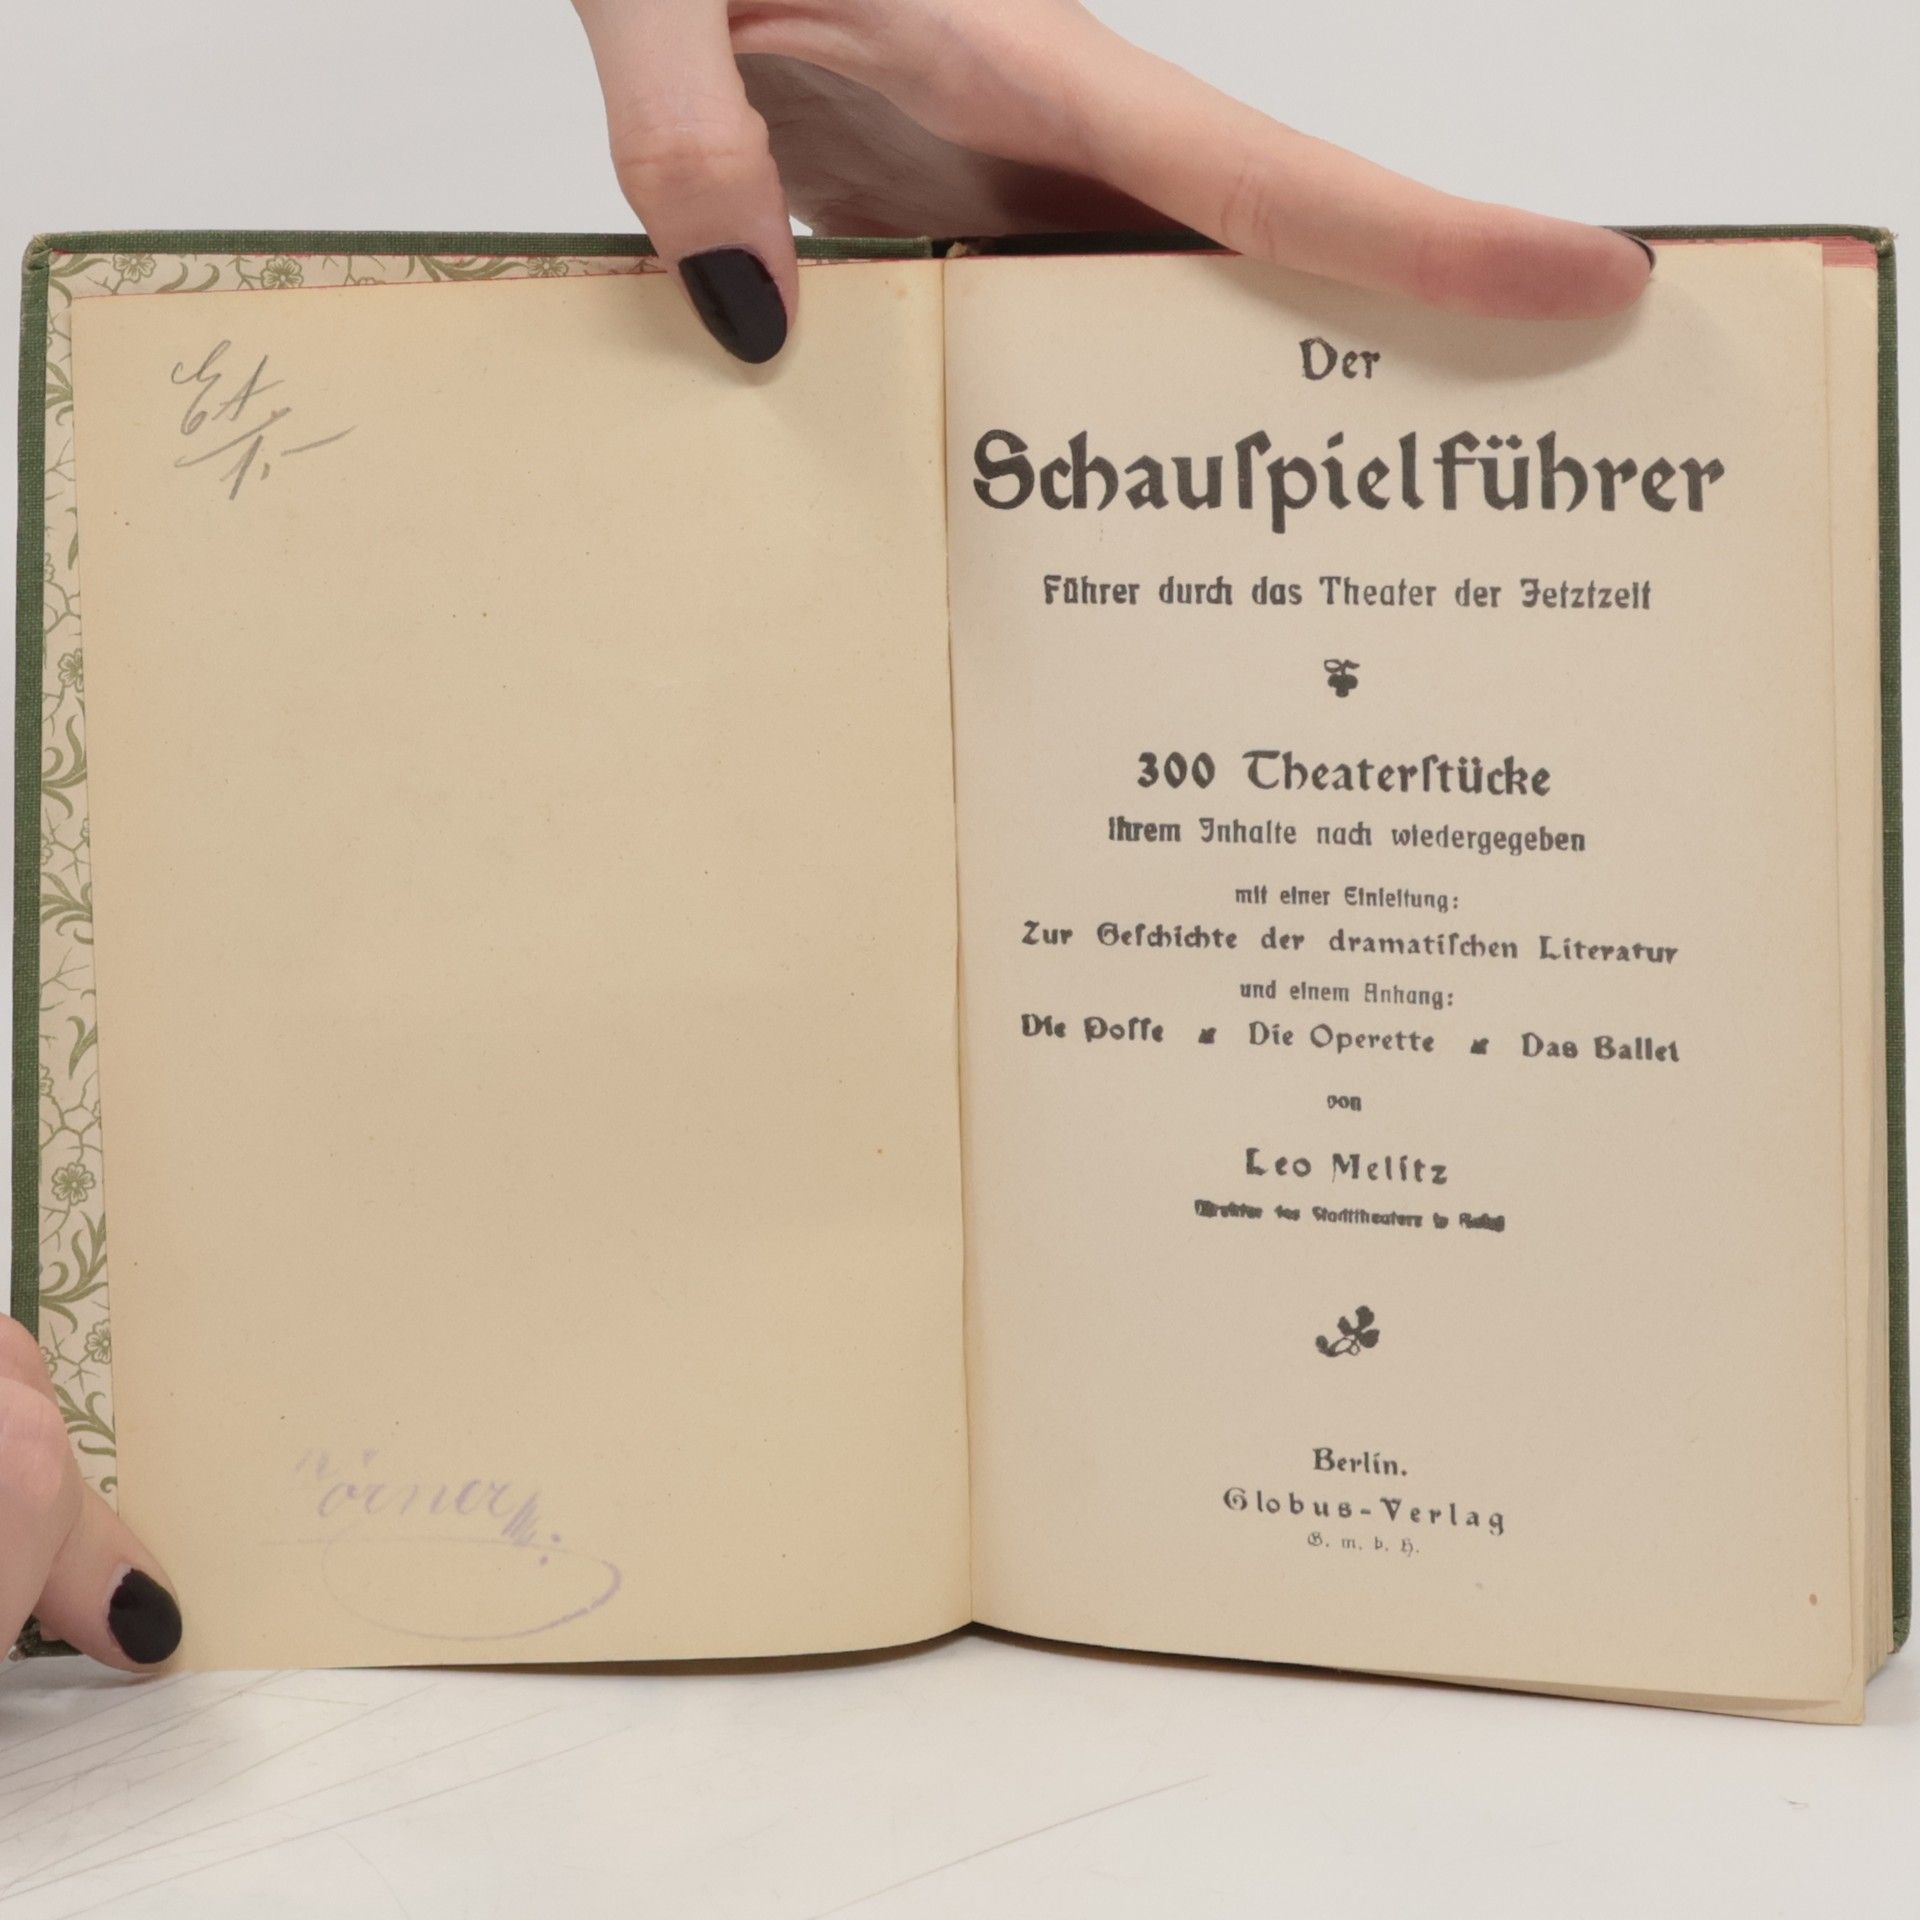 Der
Schauſpielführer
Führer durch das Theater der Jetztzeit
300 Theaterſtücke
ihrem Inhalte nach wiedergegeben
mit einer Einleitung:
Zur Geſchichte der dramatiſchen Literatur
und einem Anhang:
Die Poſſe Die Operette Das Ballet
von
Leo Melitz
Direktor des Stadttheaters in Baſel
Berlin.
Globus-Verlag
G. m. b. H.